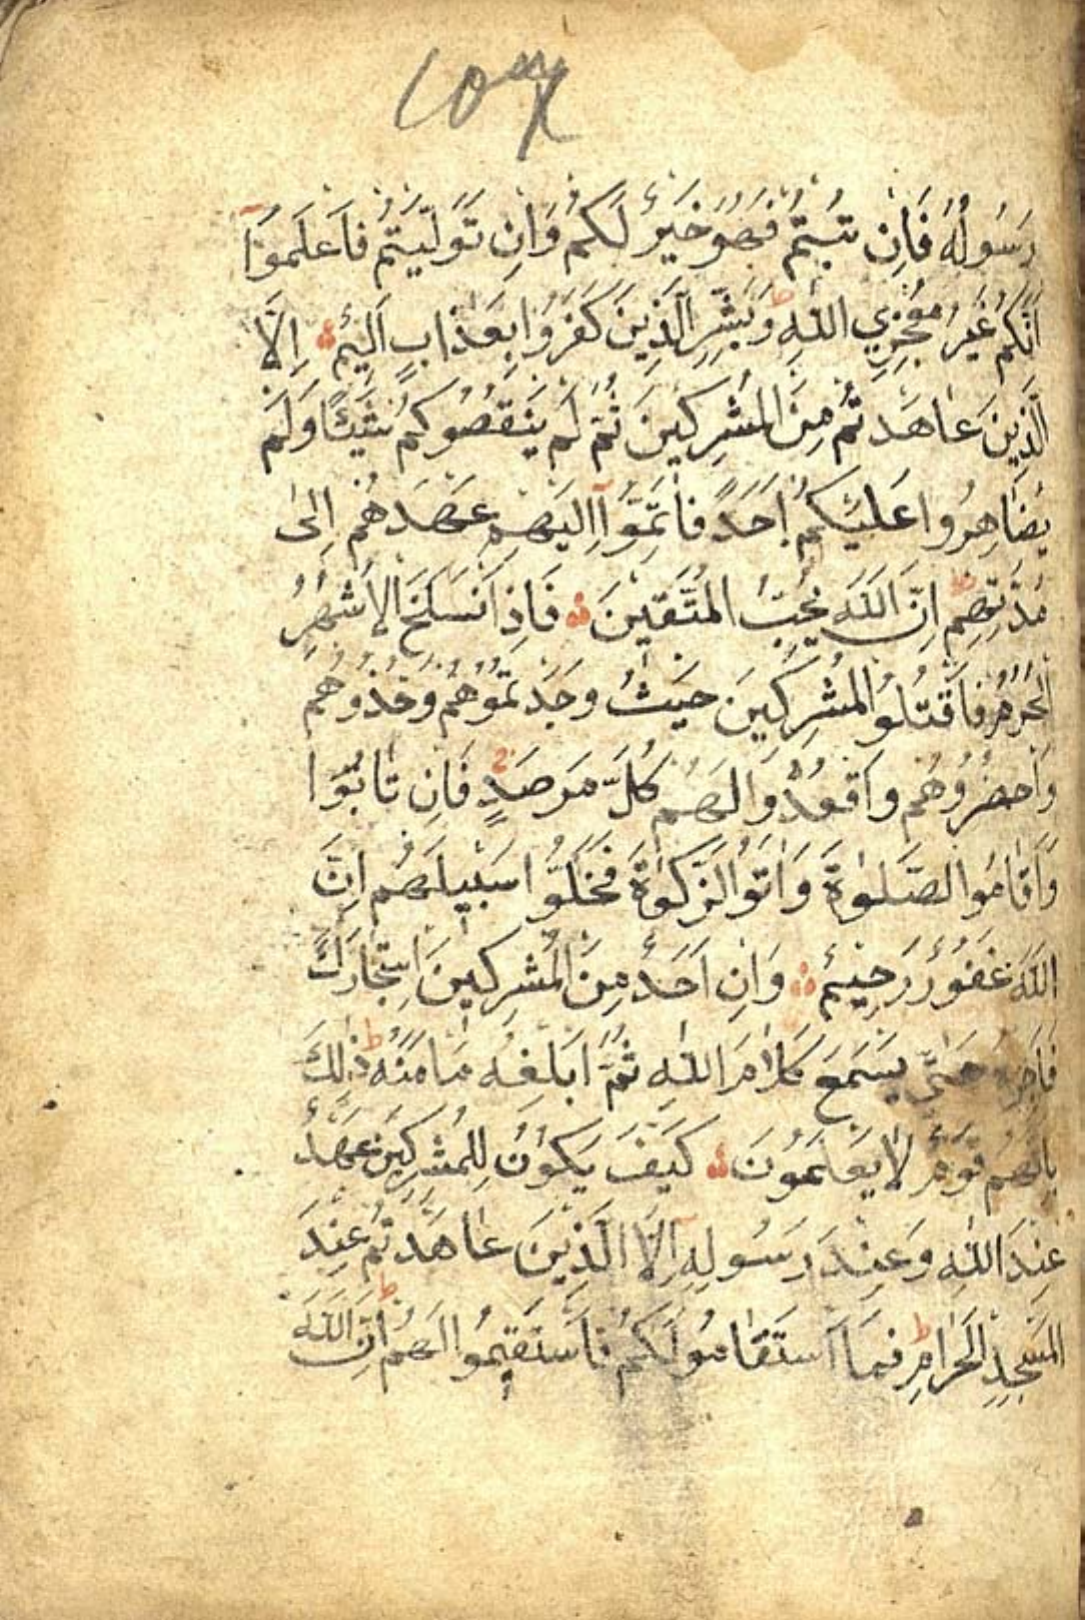 رَسُولُهُ فَاِنْ تُبْتُمْ فَهُوَ خَيْرٌ لَكُمْ وَاِنْ تَوَلَّيْتُمْ فَاعْلَمُوٓا
اَنَّكُمْ غَيْرُ مُعْجِزِي اللّٰهِ ط وَبَشِّرِ الَّذِينَ كَفَرُوا بِعَذَابٍ اَلِيمٍ اِلَّا
الَّذِينَ عَاهَدْتُمْ مِنَ الْمُشْرِكِينَ ثُمَّ لَمْ يَنْقُصُوكُمْ شَيْئًا وَلَمْ
يُضَاهِرُوا عَلَيْكُمْ اَحَدًا فَاَتِمُّوٓا اِلَيْهِمْ عَهْدَهُمْ اِلٰى
مُدَّتِهِمْ ط اِنَّ اللّٰهَ يُحِبُّ الْمُتَّقِينَ فَاِذَا انْسَلَخَ الْاَشْهُرُ
الْحُرُمُ فَاقْتُلُوا الْمُشْرِكِينَ حَيْثُ وَجَدْتُمُوهُمْ وَخُذُوهُمْ
وَاحْضُرُوهُمْ وَاقْعُدُوا لَهُمْ كُلَّ مَرْصَدٍ ج فَاِنْ تَابُوا
وَاَقَامُوا الصَّلٰوةَ وَاٰتَوُا الزَّكٰوةَ فَخَلُّوا سَبِيلَهُمْ اِنَّ
اللّٰهَ غَفُورٌ رَحِيمٌ وَاِنْ اَحَدٌ مِنَ الْمُشْرِكِينَ اسْتَجَارَكَ
فَاَجِرْهُ حَتّٰى يَسْمَعَ كَلَامَ اللّٰهِ ثُمَّ اَبْلِغْهُ مَاْمَنَهُ ط ذٰلِكَ
بِاَنَّهُمْ قَوْمٌ لَا يَعْلَمُونَ كَيْفَ يَكُونُ لِلْمُشْرِكِينَ عَهْدٌ
عِنْدَ اللّٰهِ وَعِنْدَ رَسُولِهٓ اِلَّا الَّذِينَ عَاهَدْتُمْ عِنْدَ
الْمَسْجِدِ الْحَرَامِ ط فَمَا اسْتَقَامُوا لَكُمْ فَاسْتَقِيمُوا لَهُمْ ط اِنَّ اللّٰهَ